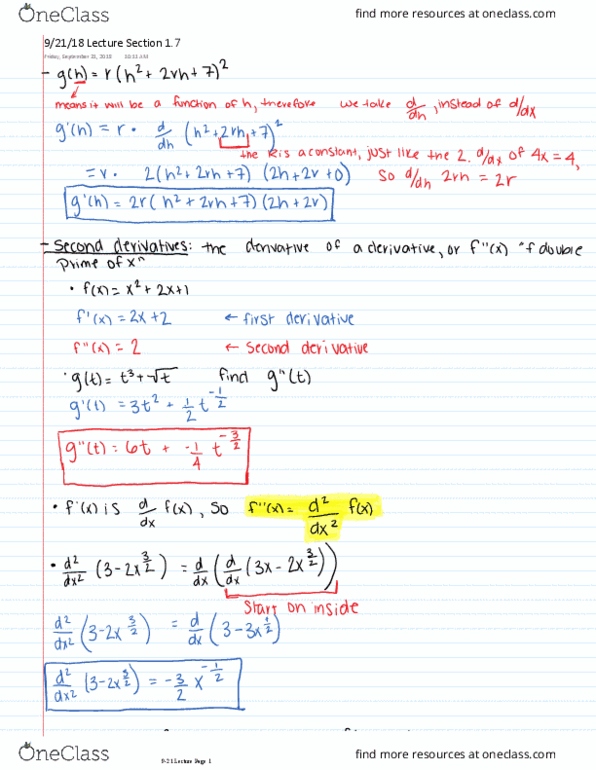 OneClass find more resources at oneclass.com
9/21/18 Lecture Section 1.7
Friday, September 21, 2018
- g(h) = r(h² + 2rh + 7)²
means it will be a function of h, therefore we take d/dh, instead of d/dx
g'(h) = r · d/dh (h² + 2rh + 7)²
the R is a constant, just like the 2. d/dx of 4x = 4,
= r · 2(h² + 2rh + 7) (2h + 2r + 0) so d/dh 2rh = 2r
g'(h) = 2r(h² + 2rh + 7)(2h + 2r)
- Second derivatives: the derivative of a derivative, or f''(x) "f double
prime of x"
• f(x) = x² + 2x + 1
f'(x) = 2x + 2 ← first derivative
f''(x) = 2 ← second derivative
• g(t) = t³ + √t find g''(t)
g'(t) = 3t² + 1/2 t^(-1/2)
g''(t) = 6t + -1/4 t^(-3/2)
• f'(x) is d/dx f(x), so f''(x) = d²/dx² f(x)
• d²/dx² (3 - 2x^(3/2)) = d/dx (d/dx (3x - 2x^(3/2)))
Start on inside
d²/dx² (3 - 2x^(3/2)) = d/dx (3 - 3x^(1/2))
d²/dx² (3 - 2x^(3/2)) = -3/2 x^(-1/2)
9-21 Lecture Page 1
OneClass find more resources at oneclass.com